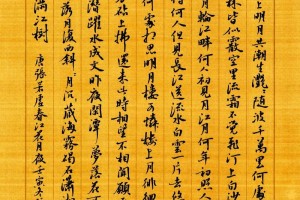 上明月共潮生灧〻随波千萬里何處
林皆似霰空里流霜不覺飛汀上白沙
月輪江畔何人初見月江月何年初照人
待何人但見長江送流水白雲一片去悠
何處相思明月樓可憐樓上月徘徊
砧上拂還來此時相望不相聞願
潛躍水成文昨夜閑潭夢落花可
落月復西斜〻月沉〻藏海霧碣石瀟
滿江樹
唐張若虛春江花月夜壬寅